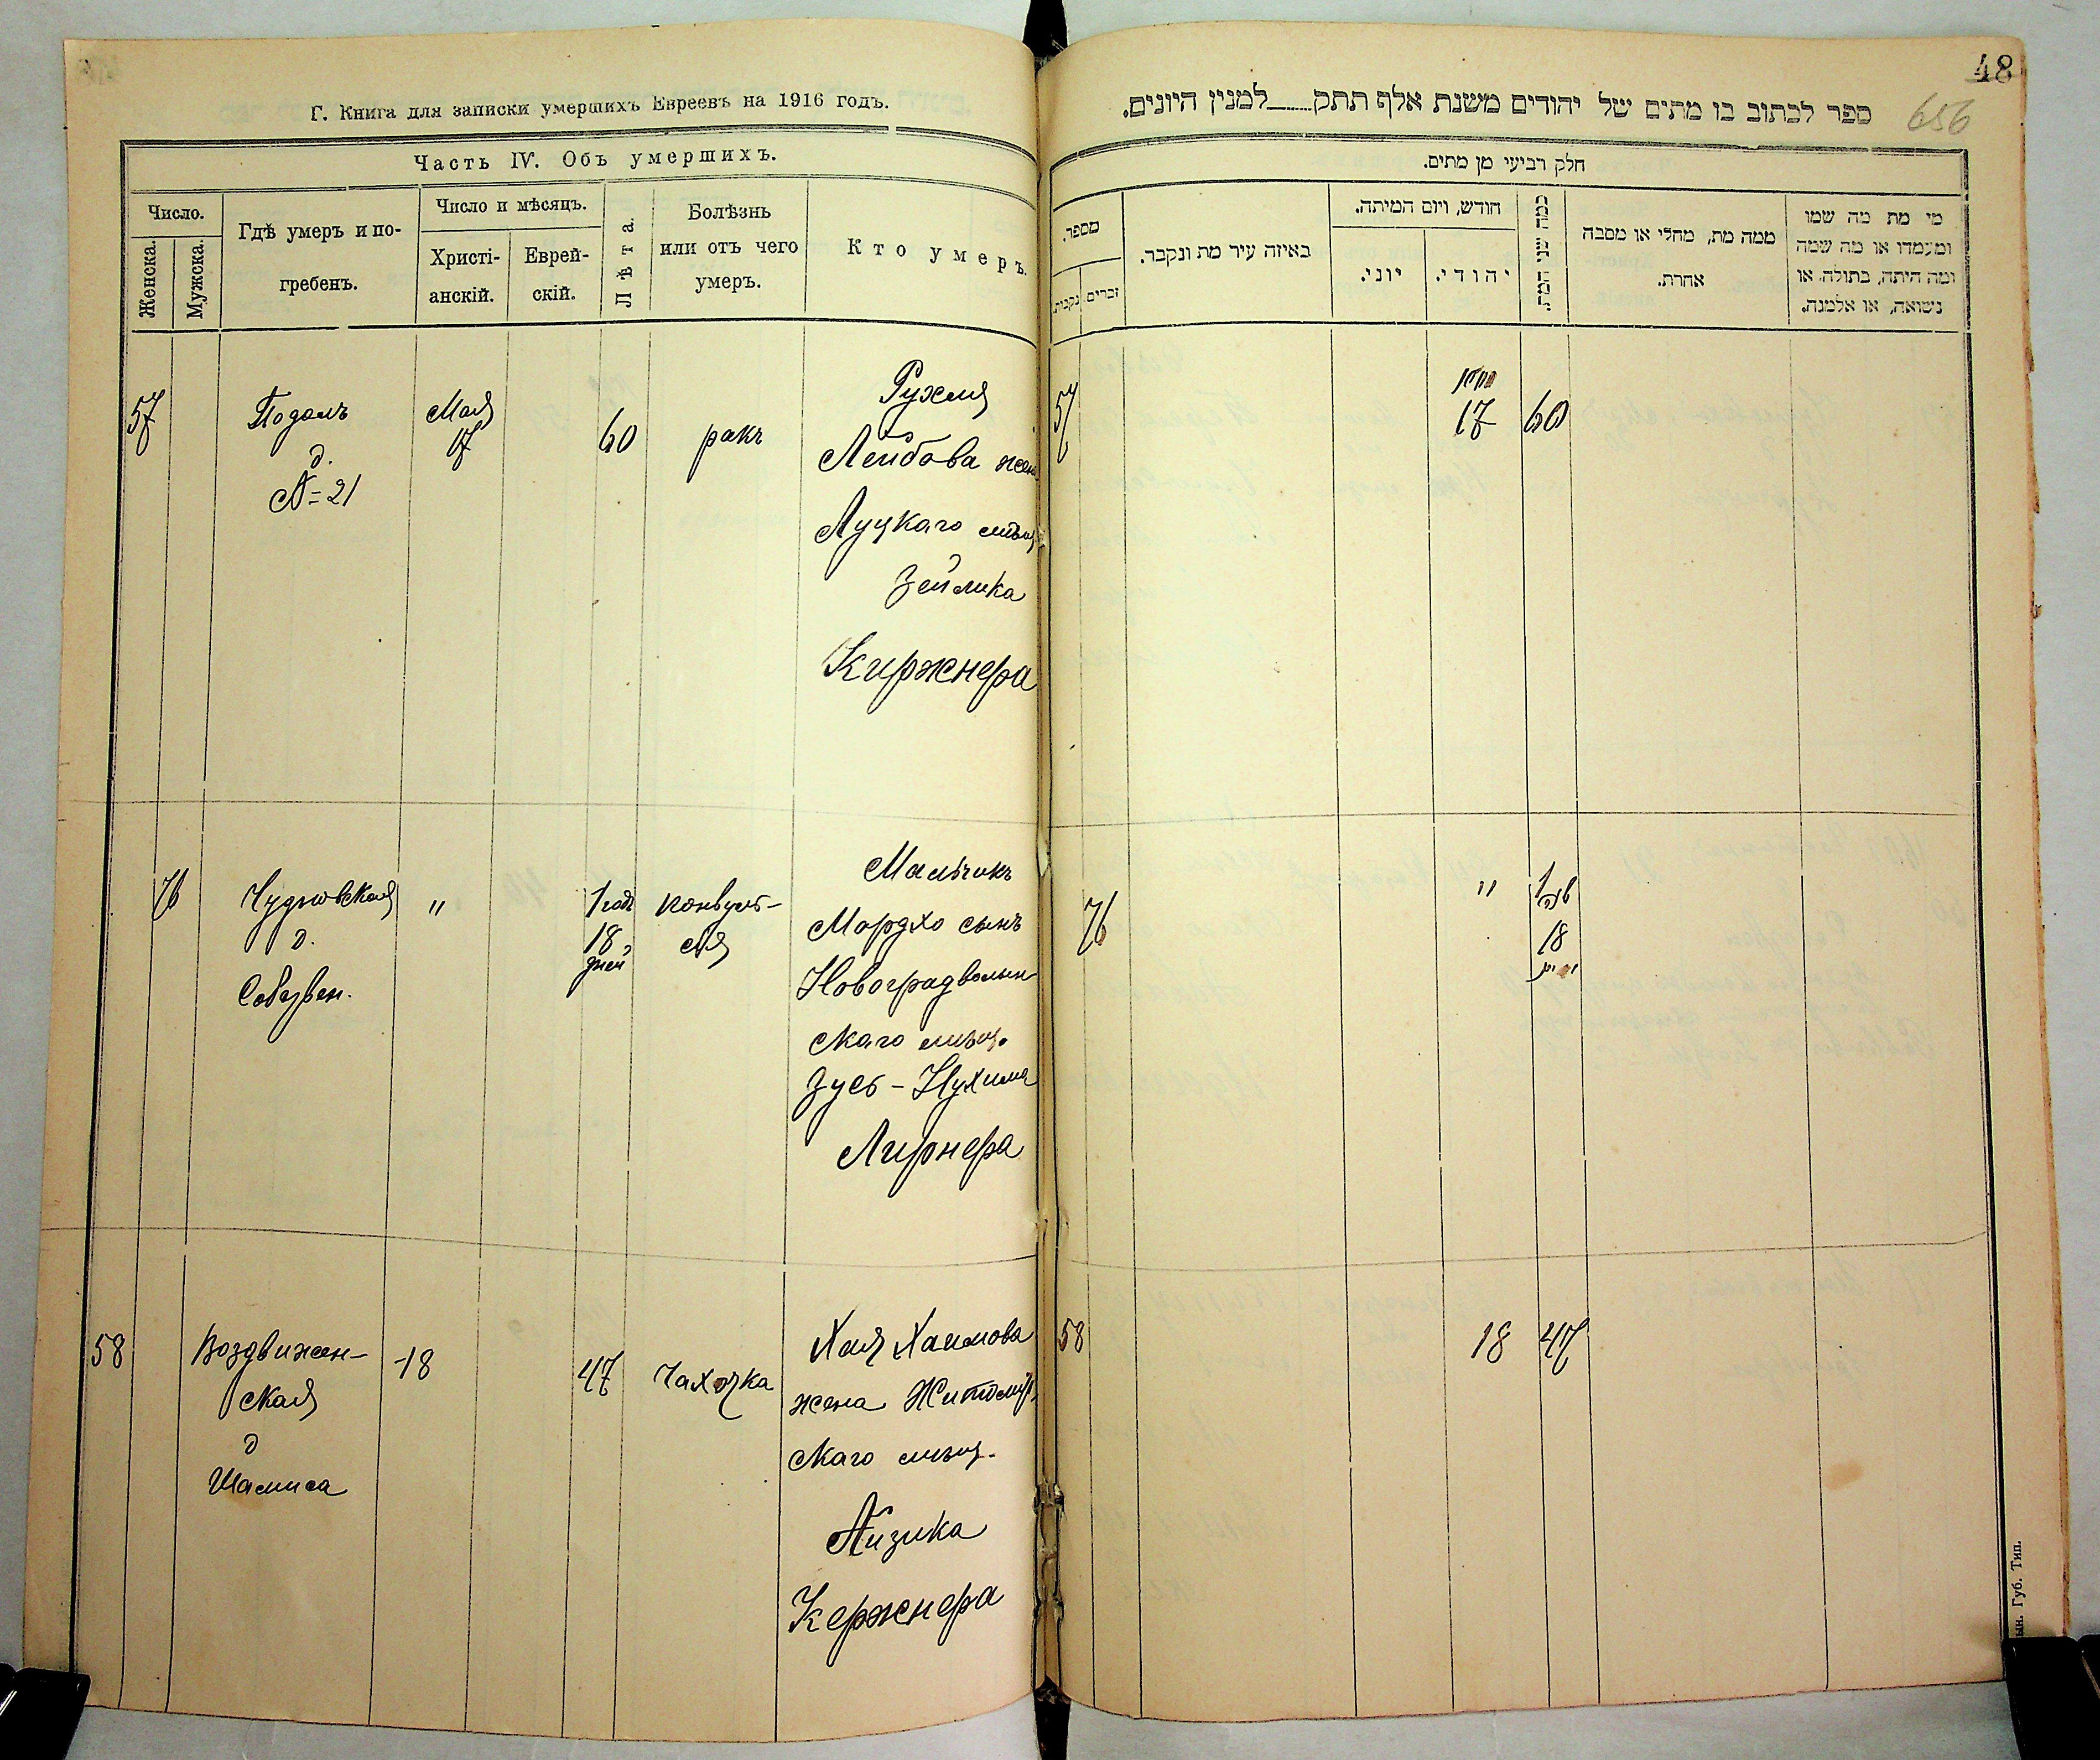 Г. Книга для записки умершихъ Евреевъ на 1916 годъ.
Часть IV. Объ умершихъ.
Число.
Женска.
Мужска.
Гдѣ умеръ и по-
гребенъ.
Число и мѣсяцъ.
Христі-
анскій.
Еврей-
скій.
Лѣта.
Болѣзнь
или отъ чего
умеръ.
Кто умеръ.
57
Подолъ
д.
№ 21
Мая
17
60
ракъ
Рухля
Лейбова жена
Луцкаго мѣщ
Зейлика
Киржнера
76
Чудновская
д.
"
1 годъ
18
дней
конвуль-
сія
Мальчикъ
Мордхо сынъ
Новоградволын-
скаго мѣщ.
Зусь-Нухима
Лирнера
58
Воздвижен-
ская
д
Шамиса
18
47
Чахотка
Хая Хаимова
жена Житомір
скаго мѣщ.
Айзика
Кержнера
48
656
ספר לכתוב בו מתים של יהודים משנת אלף תתק למנין היונים.
חלק רביעי מן מתים.
מספר.
נקבות.
זכרים.
באיזה עיר מת ונקבר.
חודש, ויום המיתה.
יוני.
יהודי.
כמה שני המת.
ממה מת, מחלי או מסבה
אחרת.
מי מת מה שמו
ומעמדו או מה שמה
ומה היתה, בתולה, או
נשואה, או אלמנה.
57
17
60
76
"
1
שנה
18
58
18
47
Губ. Тип.